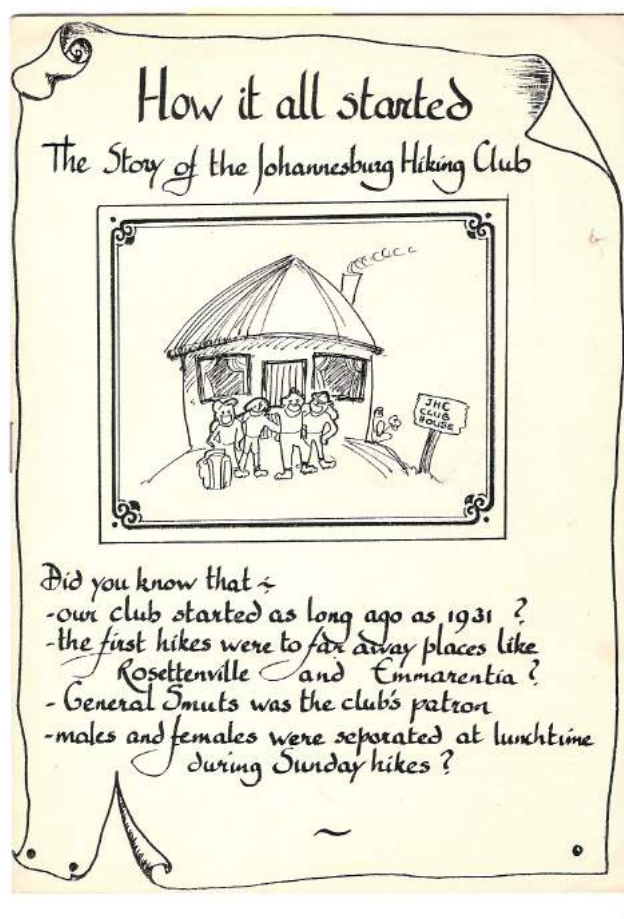 How it all started
The Story of the Johannesburg Hiking Club
JHC
CLUB
HOUSE
Did you know that :-
-our club started as long ago as 1931 ?
-the first hikes were to far away places like
Rosettenville and Emmarentia ?
- General Smuts was the club's patron
-males and females were seporated at lunchtime
during Sunday hikes ?
~